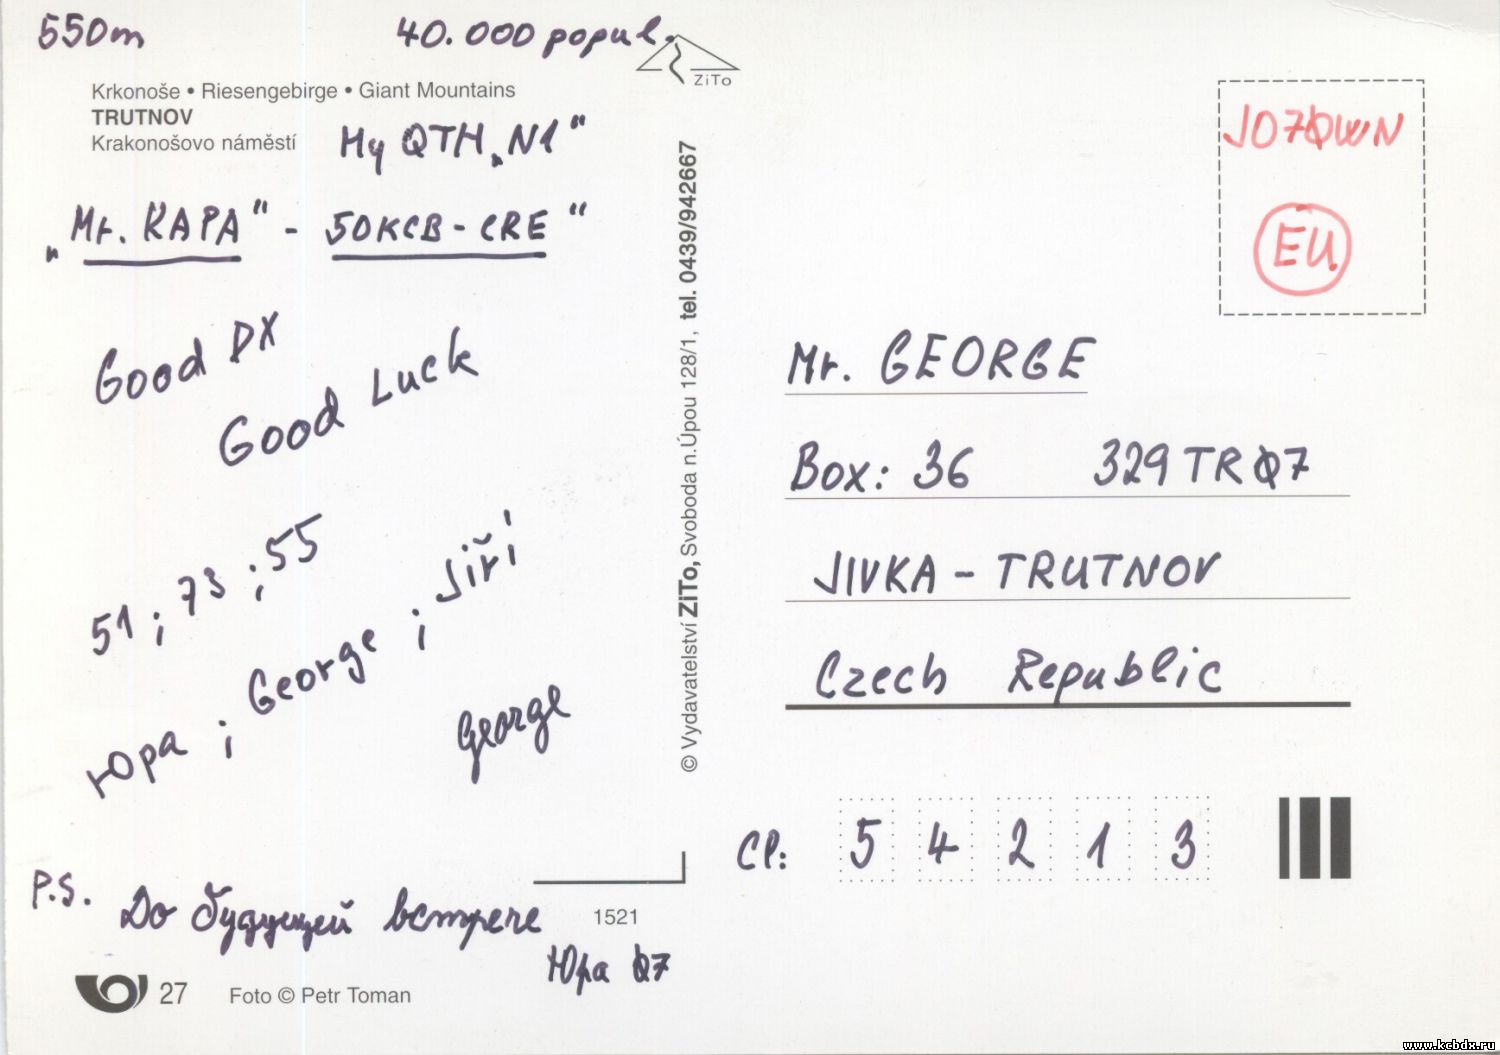 550m 40.000 popul.
ZiTo
Krkonoše • Riesengebirge • Giant Mountains
TRUTNOV
Krakonošovo náměstí
My QTH „N1“
„Mr. KAPA“ - 50KCB-CRE“
Good DX
Good Luck
51 ; 73 ; 55
Юра ; George ; Jiří
George
P.S. До будущей встрече
Юра 07
1521
27 Foto © Petr Toman
© Vydavatelství ZiTo, Svoboda n.Úpou 128/1, tel. 0439/942667
JO70WN
EU
Mr. GEORGE
Box: 36 329TR07
JIVKA - TRUTNOV
Czech Republic
CP: 5 4 2 1 3
www.kcbdx.ru